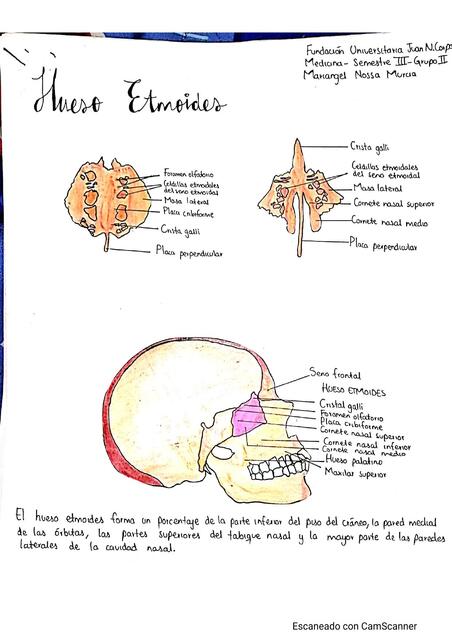 Fundación Universitaria Juan N. Corpas
Medicina - Semestre III - Grupo II
Mariangel Nossa Murcia
Hueso Etmoides
Foramen olfatorio
Celdillas etmoidales
del seno etmoidal
Masa lateral
Placa cribiforme
Crista galli
Placa perpendicular
Crista galli
Celdillas etmoidales
del seno etmoidal
Masa lateral
Cornete nasal superior
Cornete nasal medio
Placa perpendicular
Seno frontal
HUESO ETMOIDES
Cristal galli
Foramen olfatorio
Placa cribiforme
Cornete nasal superior
Cornete nasal inferior
Cornete nasal medio
Hueso palatino
Maxilar superior
El hueso etmoides forma un porcentaje de la parte inferior del piso del cráneo, la pared medial
de las órbitas, las partes superiores del tabique nasal y la mayor parte de las paredes
laterales de la cavidad nasal.
Escaneado con CamScanner